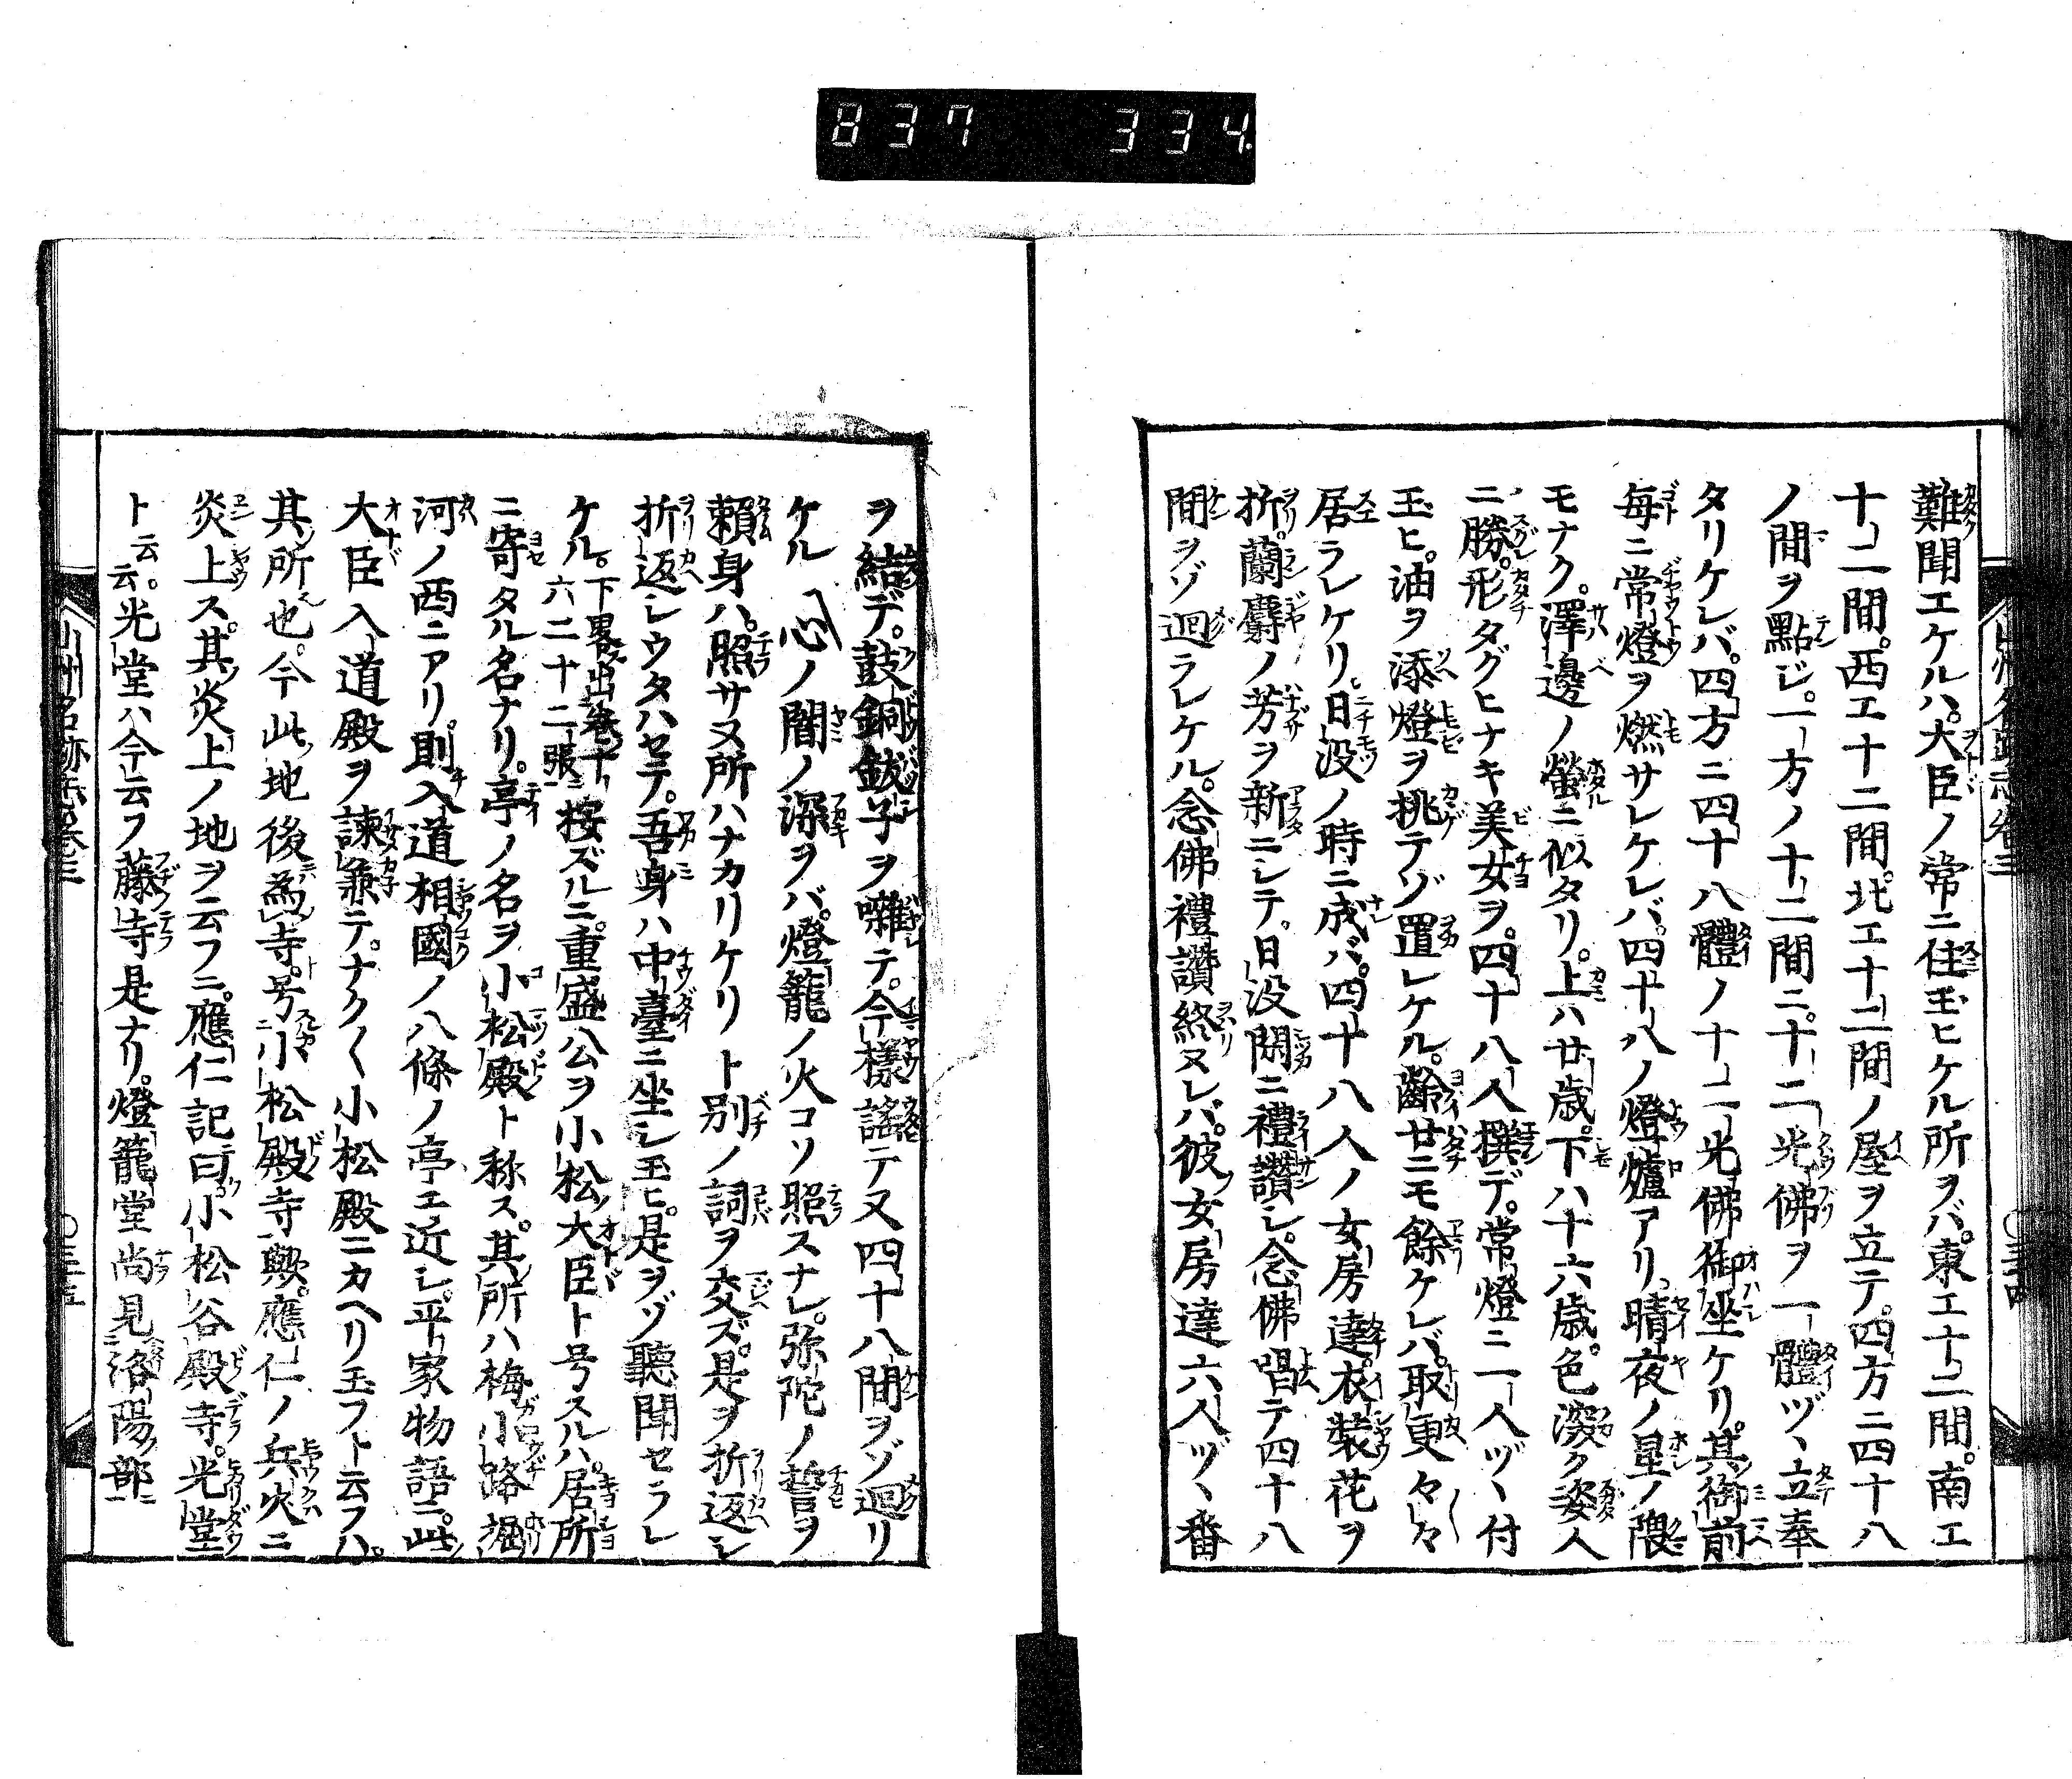 837 334
難聞エケルハ。大臣ノ常ニ住玉ヒケル所ヲバ。東エ十二間。南エ
十二間。西エ十二間。北エ十二間ノ屋ヲ立テ。四方ニ四十八
ノ間ヲ點ジ。一方ノ十二間ニ。十二光佛ヲ一體ヅヽ立奉
タリケレバ。四方ニ四十八體ノ十二光佛御坐ケリ。其御前
每ニ常燈ヲ燃サレケレバ。四十八ノ燈爐アリ。晴夜ノ星ノ隈
モナク。澤邊ノ螢ニ似タリ。上ハ廿歳。下ハ十六歳。色深ク姿人
ニ勝。形タグヒナキ美女ヲ。四十八人撰デ。常燈ニ一人ヅヽ付
玉ヒ。油ヲ添燈ヲ挑テゾ置レケル。齡廿ニモ餘ケレバ。取更々々
居ラレケリ。日沒ノ時ニ成バ。四十八人ノ女房達。衣裝花ヲ
折。蘭麝ノ芳ヲ新ニシテ。日沒閑ニ禮讚シ。念佛唱テ四十八
間ヲゾ廻ラレケル。念佛禮讚終ヌレバ。彼女房達六人ヅヽ番
ヲ結デ。鼓銅鈸子ヲ囃テ。今樣謠テ又四十八間ヲゾ廻リ
ケル 心ノ闇ノ深ヲバ。燈籠ノ火コソ照スナレ。弥陀ノ誓ヲ
賴身ハ。照サヌ所ハナカリケリ ト別ノ詞ヲ交ズ。是ヲ折返シ
折返シウタハセテ。吾身ハ中臺ニ坐シ玉ヒ。是ヲゾ聽聞セラレ
ケル。下畧出卷十六二十二張ニ 按ズルニ。重盛公ヲ小松大臣ト号スルハ。居所
ニ寄タル名ナリ。亭ノ名ヲ小松殿ト称ス。其所ハ梅小路堀
河ノ西ニアリ。則入道相國ノ八條ノ亭エ近シ。平家物語ニ。此
大臣入道殿ヲ諫兼テ。ナク〱小松殿ニカヘリ玉フト云フハ。
其所也。今此地後為寺。号小松殿寺歟。應仁ノ兵火ニ
炎上ス。其炎上ノ地ヲ云フニ。應仁記曰小松谷殿寺。光堂
ト云云。光堂ハ今云フ藤寺是ナリ。燈籠堂尚見洛陽部ニ